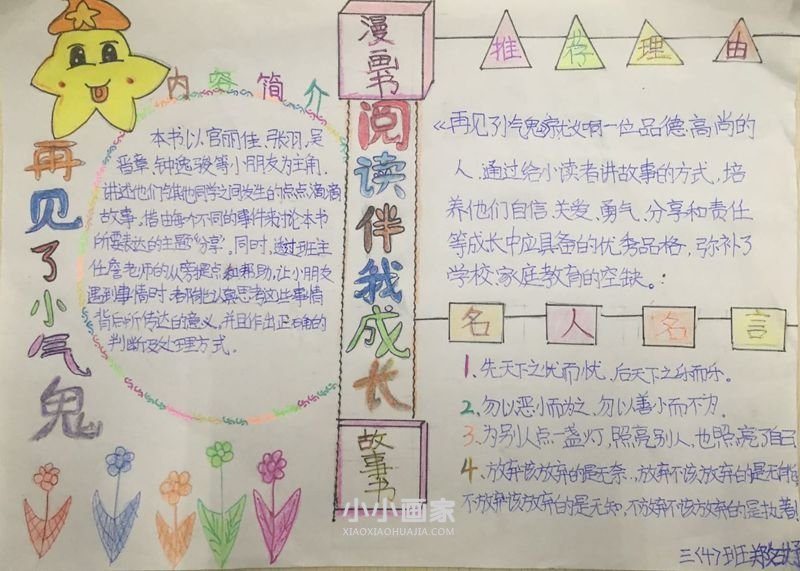 再见了小气鬼
内容简介
本书以官丽佳、张羽、吴
晋章、钟逸骏等小朋友为主角,
讲述他们与其他同学之间发生的点点滴滴
故事。借由每个不同的事件来讨论本书
所要表达的主题“分享”。同时,透过班主
任詹老师的从旁提点和帮助,让小朋友
遇到事情时,都能认真思考这些事情
背后所传达的意义,并且作出正确的
判断及处理方式。
漫画书
阅读伴我成长
故事书
推荐理由
《再见了小气鬼
一位品德高尚的
人,通过给小读者讲故事的方式,培
养他们自信、关爱、勇气、分享和责任
等成长中应具备的优秀品格,弥补了
学校、家庭教育的空缺。
名人名言
1、先天下之忧而忧,后天下之乐而乐。
2、勿以恶小而为之,勿以善小而不为.
3、为别人点一盏灯,照亮别人,也照亮了自己
4、放弃该放弃的是无奈,放弃不该放弃的是无能
不放弃该放弃的是无知,不放弃不该放弃的是执著
三(4)班
小小画家
XIAOXIAOHUAJIA.COM